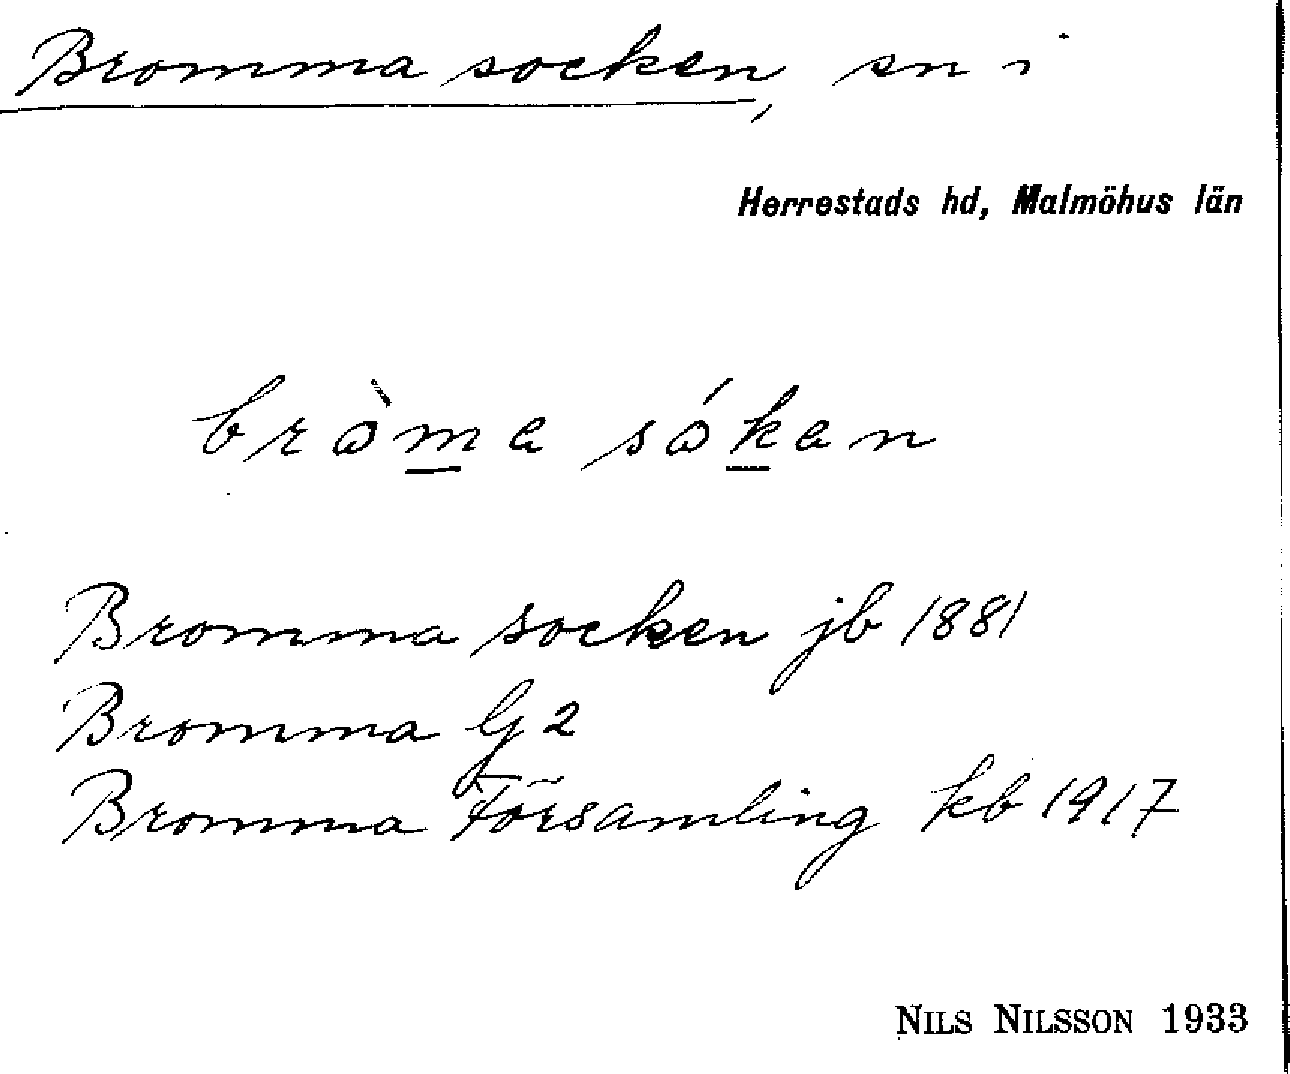 Bromma socken, sn i
Herrestads hd, Malmöhus län
bròma sókan
Bromma socken jb 1881
Bromma G 2
Bromma Församling kb 1917
NILS NILSSON 1933